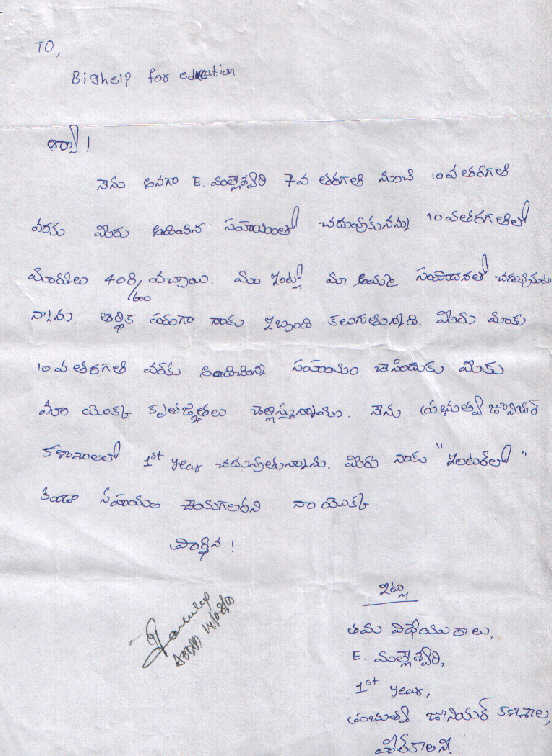 TO,
Bighelp for education
ఆర్యా!
నేను అనగా E. మల్లేశ్వరి 7వ తరగతి నుంచి 10వ తరగతి
వరకు మీరు అందించిన సహాయంతో చదువుకున్నాను 10వతరగతిలో
మార్కులు 408/600 వచ్చాయి. మా ఇంట్లో మా అమ్మ సంపాదనతో
ఆర్థిక పరంగా నాకు ఇబ్బంది కలుగుతున్నది. మీరు నాకు
10వ తరగతి వరకు అందించిన సహాయం చేసినందుకు మీకు
మా యొక్క కృతజ్ఞతలు చెల్లిస్తున్నాను. నేను ప్రభుత్వ జూనియర్
కళాశాలలో 1st year చదువుతున్నాను. మీరు నాకు "ఇంటర్‌లో"
కూడా సహాయం చేయగలరని నా యొక్క
ప్రార్థన!
ఇట్లు
తమ విధేయురాలు,
E. మల్లేశ్వరి,
1st year,
ప్రభుత్వ జూనియర్ కళాశాల,